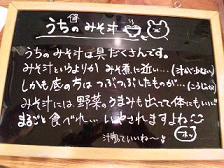 うちのみそ汁
うちのみそ汁は具だくさんです。
みそ汁というよりか みそ煮に近い…(汁が少ない)
しかも底の方は つぶつぶしたものが…(こうじみそ)
みそ汁には野菜のうまみも出ってて体にもいい
まるごと食べれ… いやされますよね
汁物っていいね〜